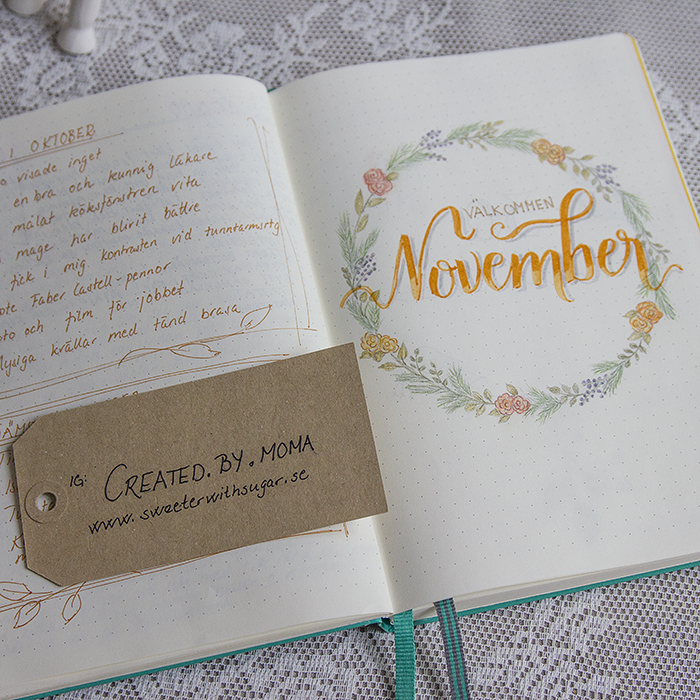 I OKTOBER
visade inget
en bra och kunnig läkare
målat köksfönstren vita
mage har blivit bättre
tick i mig kontrasten vid tunntarmsrtg
Faber Lastell-pennor
och film för jobbet
kvällar med tänd brasa
IG: CREATED.BY.MOMA
www.sweeterwithsugar.se
VÄLKOMMEN
November